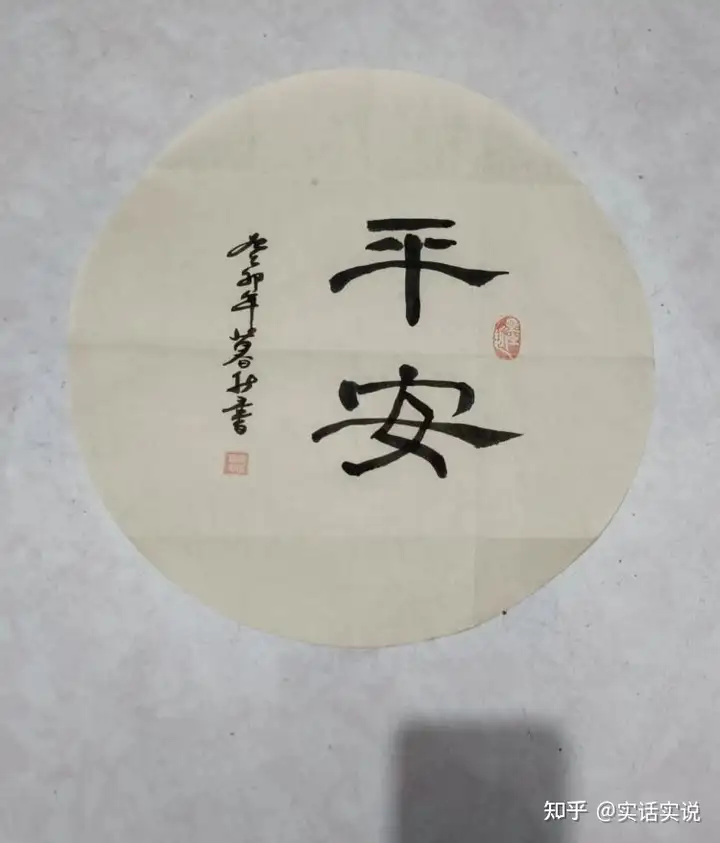 平安
癸卯年暮秋書
知乎 @实话实说